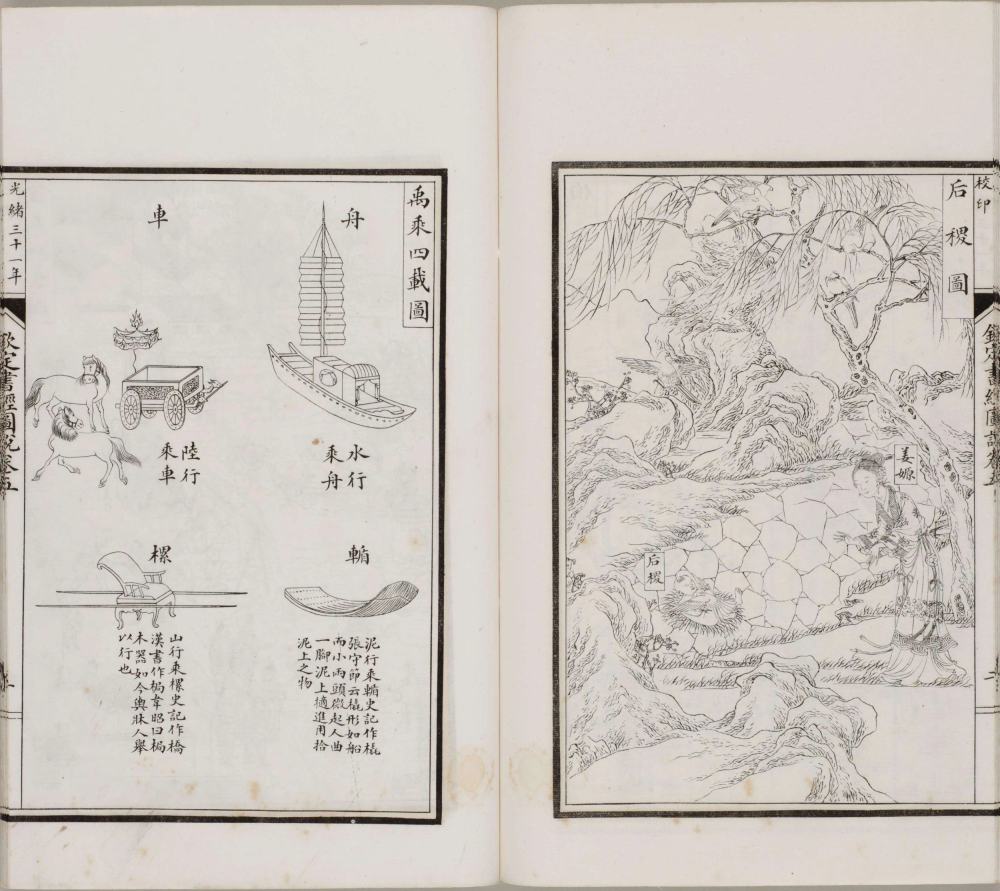 校印
欽定書經圖說卷五
后稷圖
姜嫄
后稷
禹乘四載圖
舟
水行
乘舟
車
陸行
乘車
輴
泥行乘輴史記作橇
張守節云橇形如船
而小兩頭微起人曲
一腳泥上擿進用拾
泥上之物
樏
山行乘樏史記作橋
漢書作梮韋昭曰梮
木器如今輿牀人舉
以行也
光緒三十一年
欽定書經圖說卷五